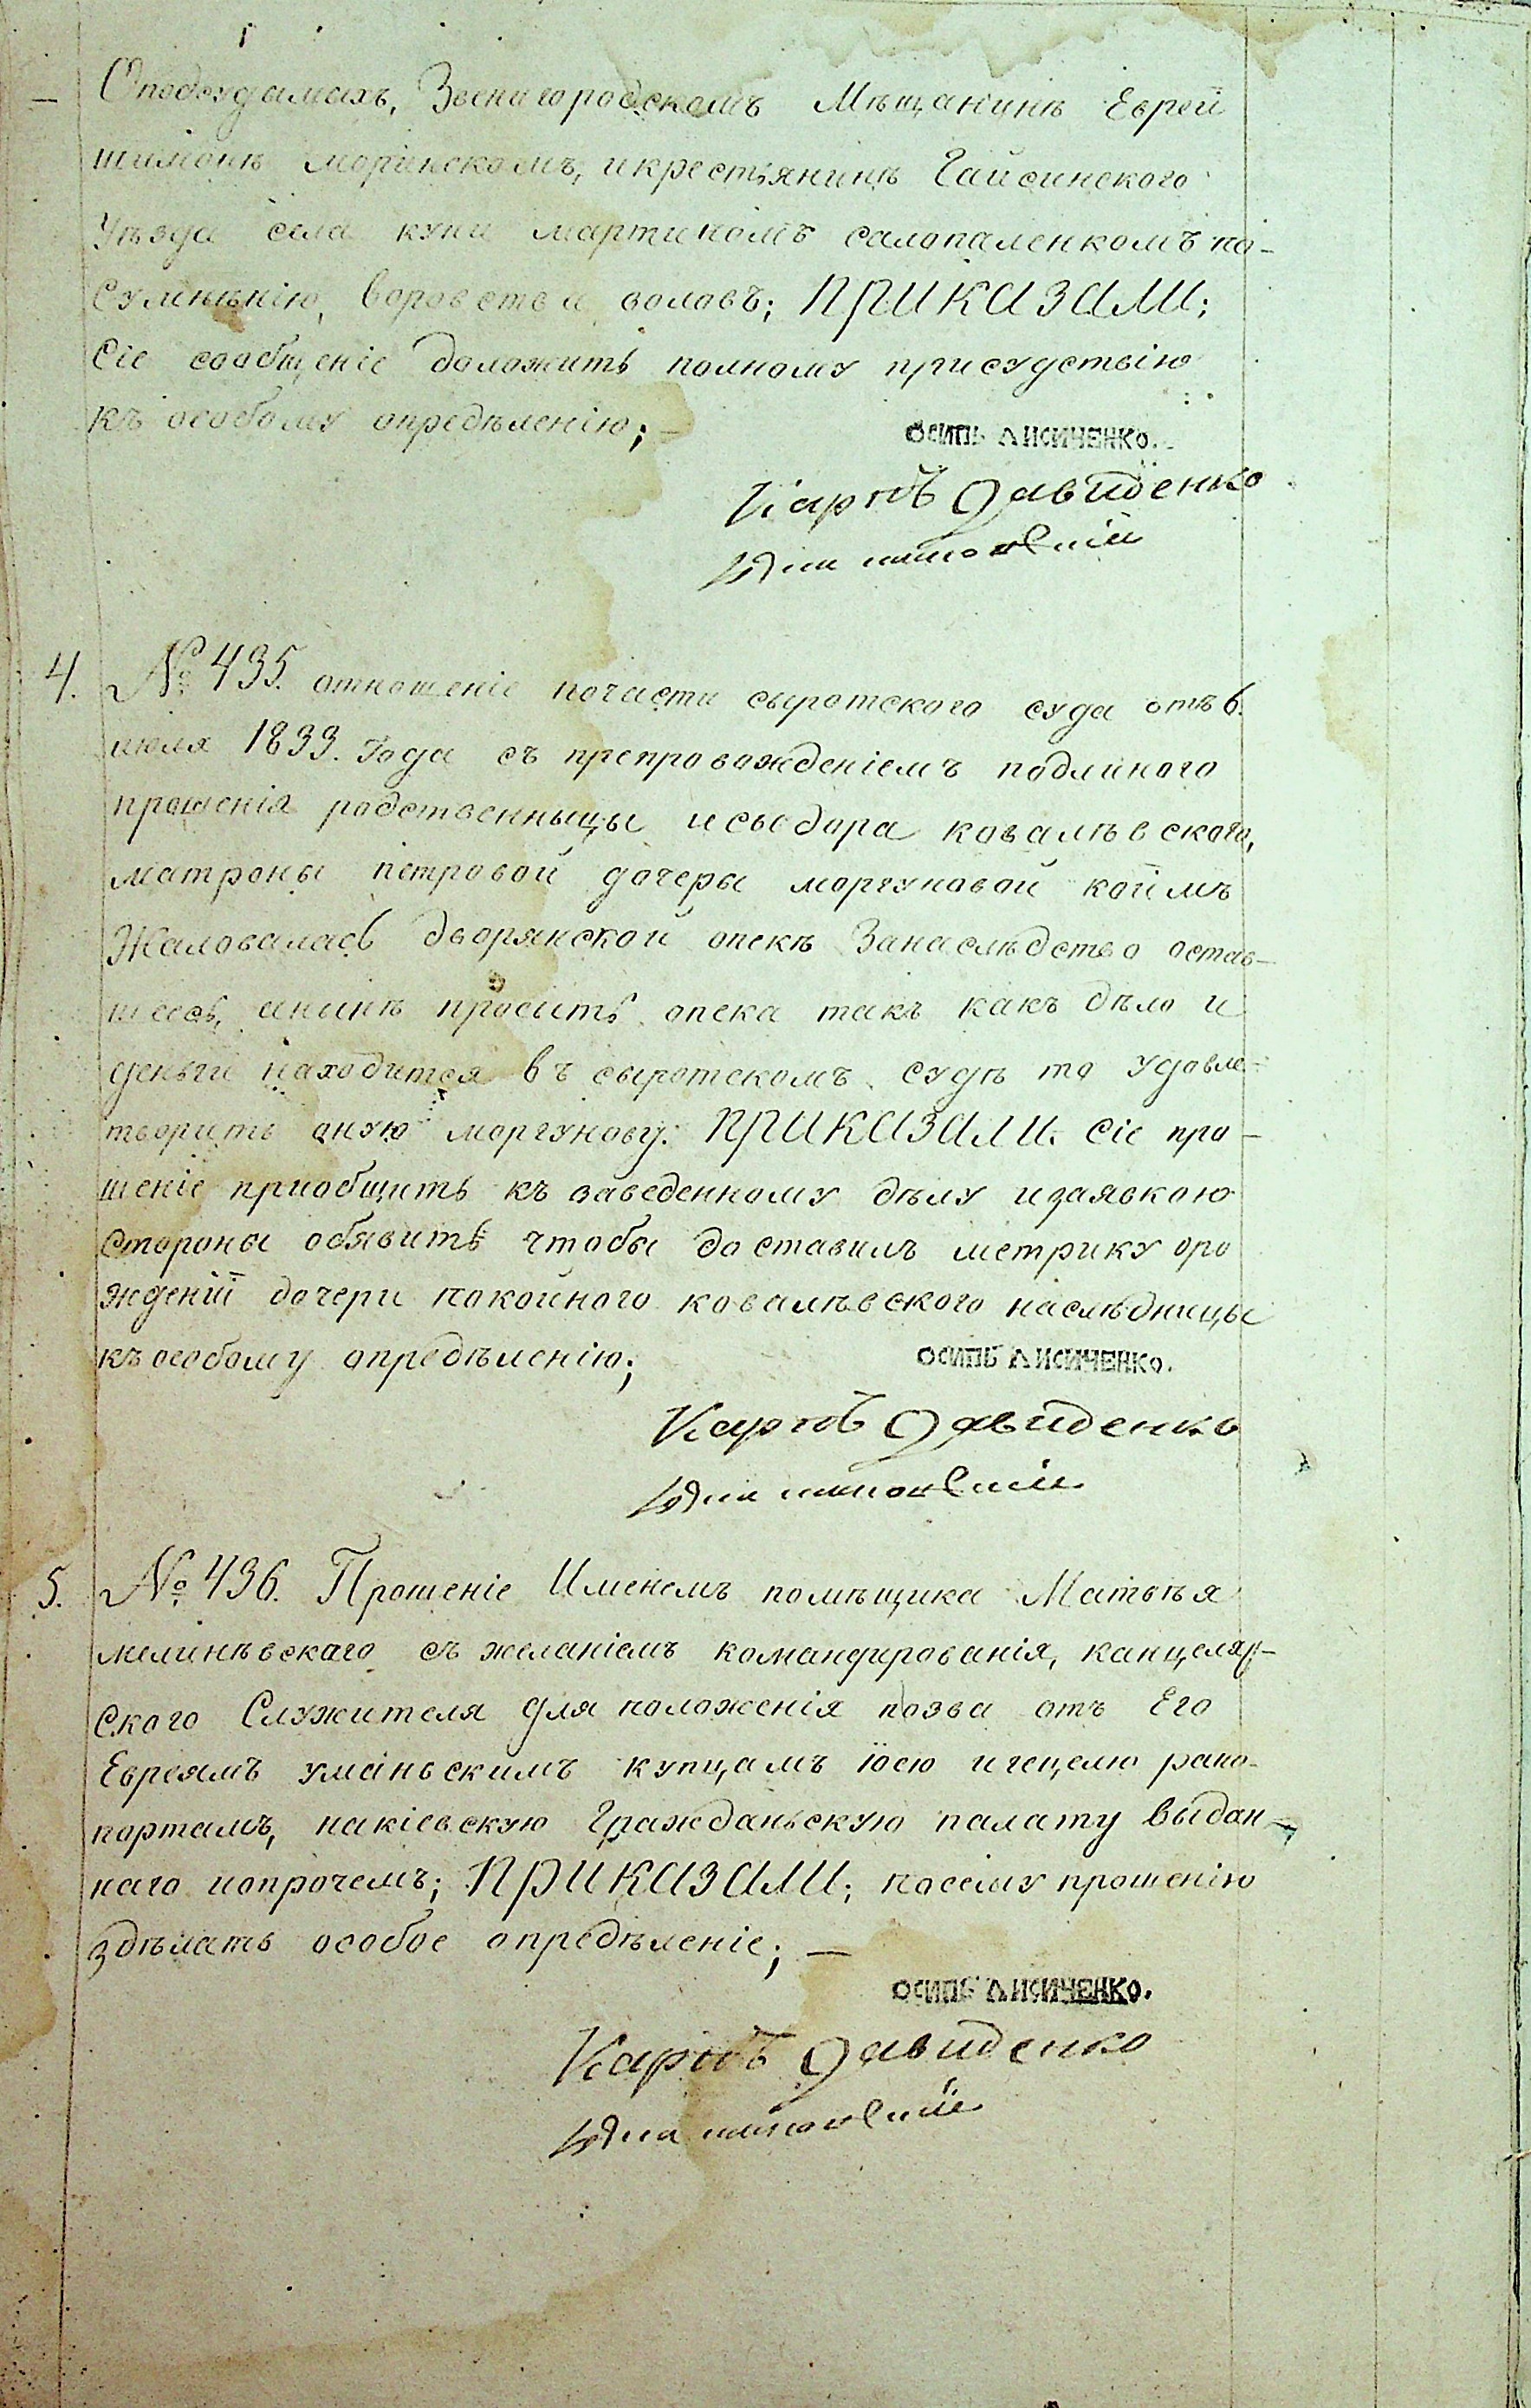 Оподсудимахъ, Звенигородскомъ Мѣщанинѣ Еврей
шимонѣ моринскомъ, икрестьянинѣ Гайсинского
Уѣзда села куни мартиномъ самопаленкомъ по-
Сумнѣнію, воровства воловъ; ПРИКАЗАЛИ;
Сіе сообщеніе доложить полному присудствію
къ особому опредѣленію;
ОСИПЪ ЛИСИЧЕНКО.
Карпъ Давиденко
4. № 435. отношеніе почасти сыротского суда отъ 6.
июля 1833. года съ препровожденіемъ подлиного
прошенія родственныцы исыдора ковалѣвского,
матроны петровой дочеры моргуновой коимъ
Жаловалась дворянской опекѣ Занаслѣдство остав-
шеесь, инынѣ просить опека такъ какъ дѣло и
деньги находится въ сыротскомъ судѣ то удовле-
творить оную моргунову. ПРИКАЗАЛИ. сіе про-
шеніе приобщить къ заведенному дѣлу изаявкою
Стороны обявить чтобы доставилъ метрику оро
жденіи дочери покойного ковалѣвского наслѣдницы
къ особому опредѣленію;
ОСИПЪ ЛИСИЧЕНКО.
Карпъ Давиденко
5. № 436. Прошеніе Именемъ помѣщика Матвѣя
мелинѣвскаго съ желаніемъ командированія, канцеляр-
ского Служителя для положенія позва отъ Его
Евреямъ уманьскимъ купцамъ іосю игецелю рапо-
портамъ, накіевскую Гражданьскую палату выдан-
наго ипрочемъ; ПРИКАЗАЛИ; посему прошенію
здѣлать особое опредѣленіе;
ОСИПЪ ЛИСИЧЕНКО.
Карпъ Давиденко